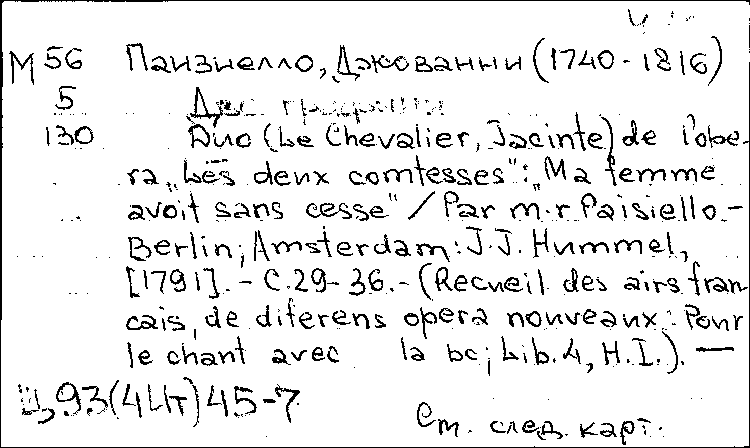 М 56 Паизиелло, Джованни (1740-1816)
5 Две графини
130 Duo (Le Chevalier, Jacinte) de l'ope-
ra „Les deux comtesses": „Ma femme
avoit sans cesse" / Par m-r Paisiello.-
Berlin; Amsterdam: J.J. Hummel,
[1791]. - С. 29-36. - (Recueil des airs fran-
cais, de diferens opera nouveaux: Pour
le chant avec la bc; Lib. 4, H.I.). —
Ц 93(4Ит)45-7
См. след. карт.